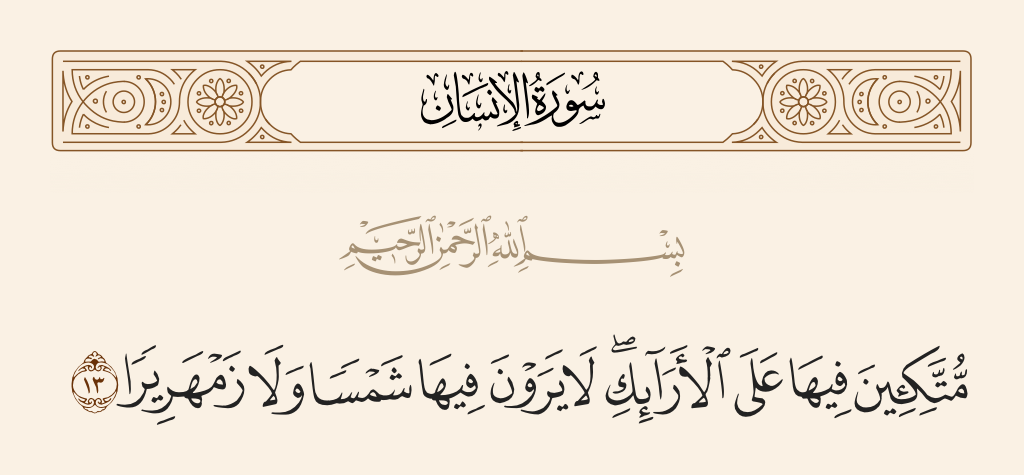 سُورَةُ الإِنسَانِ
بِسْمِ ٱللَّهِ ٱلرَّحْمَٰنِ ٱلرَّحِيمِ
مُّتَّكِـِٔينَ فِيهَا عَلَى ٱلْأَرَآئِكِ ۖ لَا يَرَوْنَ فِيهَا شَمْسًا وَلَا زَمْهَرِيرًا ١٣